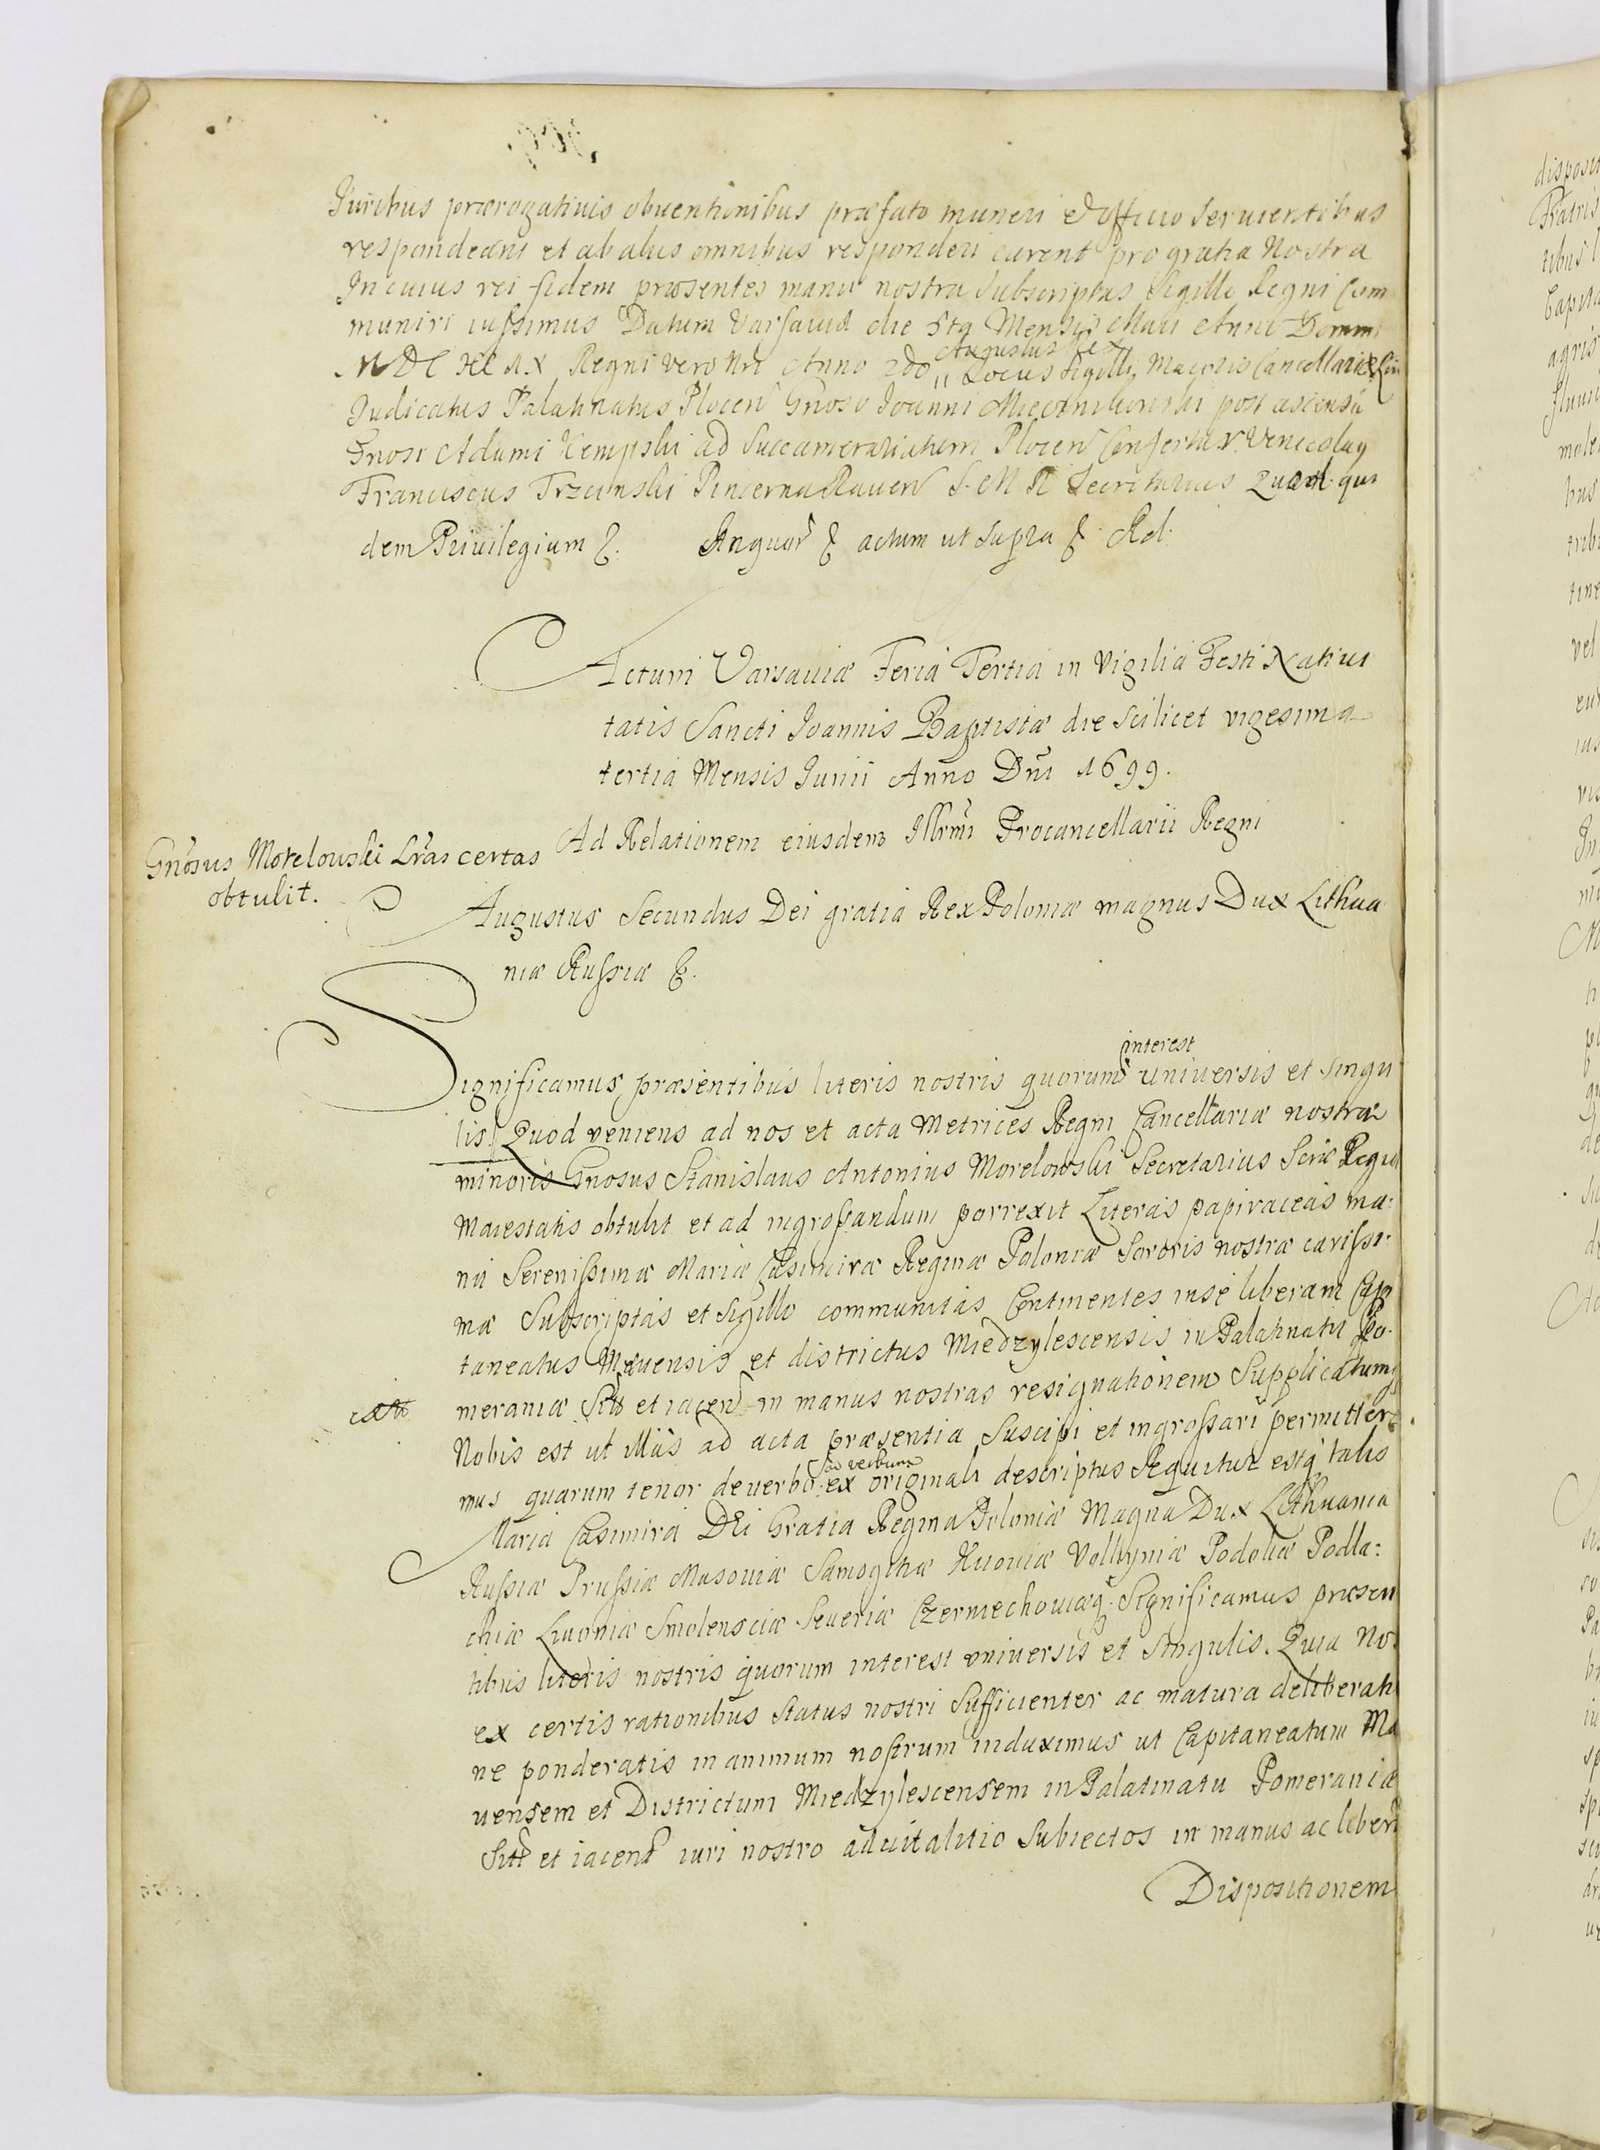 Juribus prærogativis obventionibus præfato muneri et officio servientibus
respondeant et ab aliis omnibus responderi curent pro gratia Nostra
In cuius rei fidem præsentes manu nostra subscriptas Sigillo Regni Com
muniri iussimus Datum Varsaviæ die 5ta Mensis Maii Anno Domini
MDCXCIX Regni vero Nri Anno 2do Augustus Rex Locus Sigilli Maioris Cancellariæ
Judicatus Palatinatus Plocen Gnoso Joanni post ascensū
Gnosi Adami Kempski ad Succamerariatum Plocen Confertur
Franciscus Trzcinski Pincerna Raven S. M. R. Secretarius Quod qui
dem Privilegium &. Anquor & actum ut supra & Rel.
Actum Varsaviæ Feria Tertia in Vigilia Festi Nativi
tatis Sancti Joannis Baptistæ die scilicet vigesima
tertia Mensis Junii Anno Dni 1699.
Ad Relationem eiusdem Illrmi Procancellarii Regni
Gnosus Morelowski Lras certas
obtulit.
Augustus Secundus Dei gratia Rex Poloniæ magnus Dux Lithua
niæ Russiæ &.
interest
Significamus præsentibus literis nostris quorum universis et singu
lis Quod veniens ad nos et acta Metrices Regni Cancellariæ nostræ
minoris Gnosus Stanislaus Antonius Morelowski Secretarius Sacræ Regiæ
Maiestatis obtulit et ad ingrossandum porrexit Literas papiraceas ma:
nu Serenissimæ Mariæ Casimiræ Reginæ Poloniæ Sororis nostræ carissi:
mæ Subscriptas et Sigillo communitas Continentes in se liberam Capi
taneatus Mævensis et districtus Miedzylescensis in Palatinatu Po:
meraniæ Sitt et iacen in manus nostras resignationem Supplicatumq
Nobis est ut illas ad acta præsentia Suscipi et ingrossari permittere
mus quarum tenor de verbo ad verbum ex originali descriptus Sequitur estq talis
Maria Casimira Dei Gratia Regina Poloniæ Magna Dux Lithuaniæ
Russiæ Prussiæ Masoviæ Samogitiæ Kiioviæ Volhyniæ Podoliæ Podla:
chiæ Livoniæ Smolensciæ Severiæ Czerniechoviæq Significamus præsen
tibus literis nostris quorum interest universis et Singulis. Quia Nos
ex certis rationibus Status nostri Sufficienter ac matura deliberatio
ne ponderatis in animum nostrum induximus ut Capitaneatum Mæ
vensem et Districtum Miedzylescensem in Palatinatu Pomeraniæ
Sitt et iacent iuri nostro advitalitio Subiectos in manus ac liberā
Dispositionem